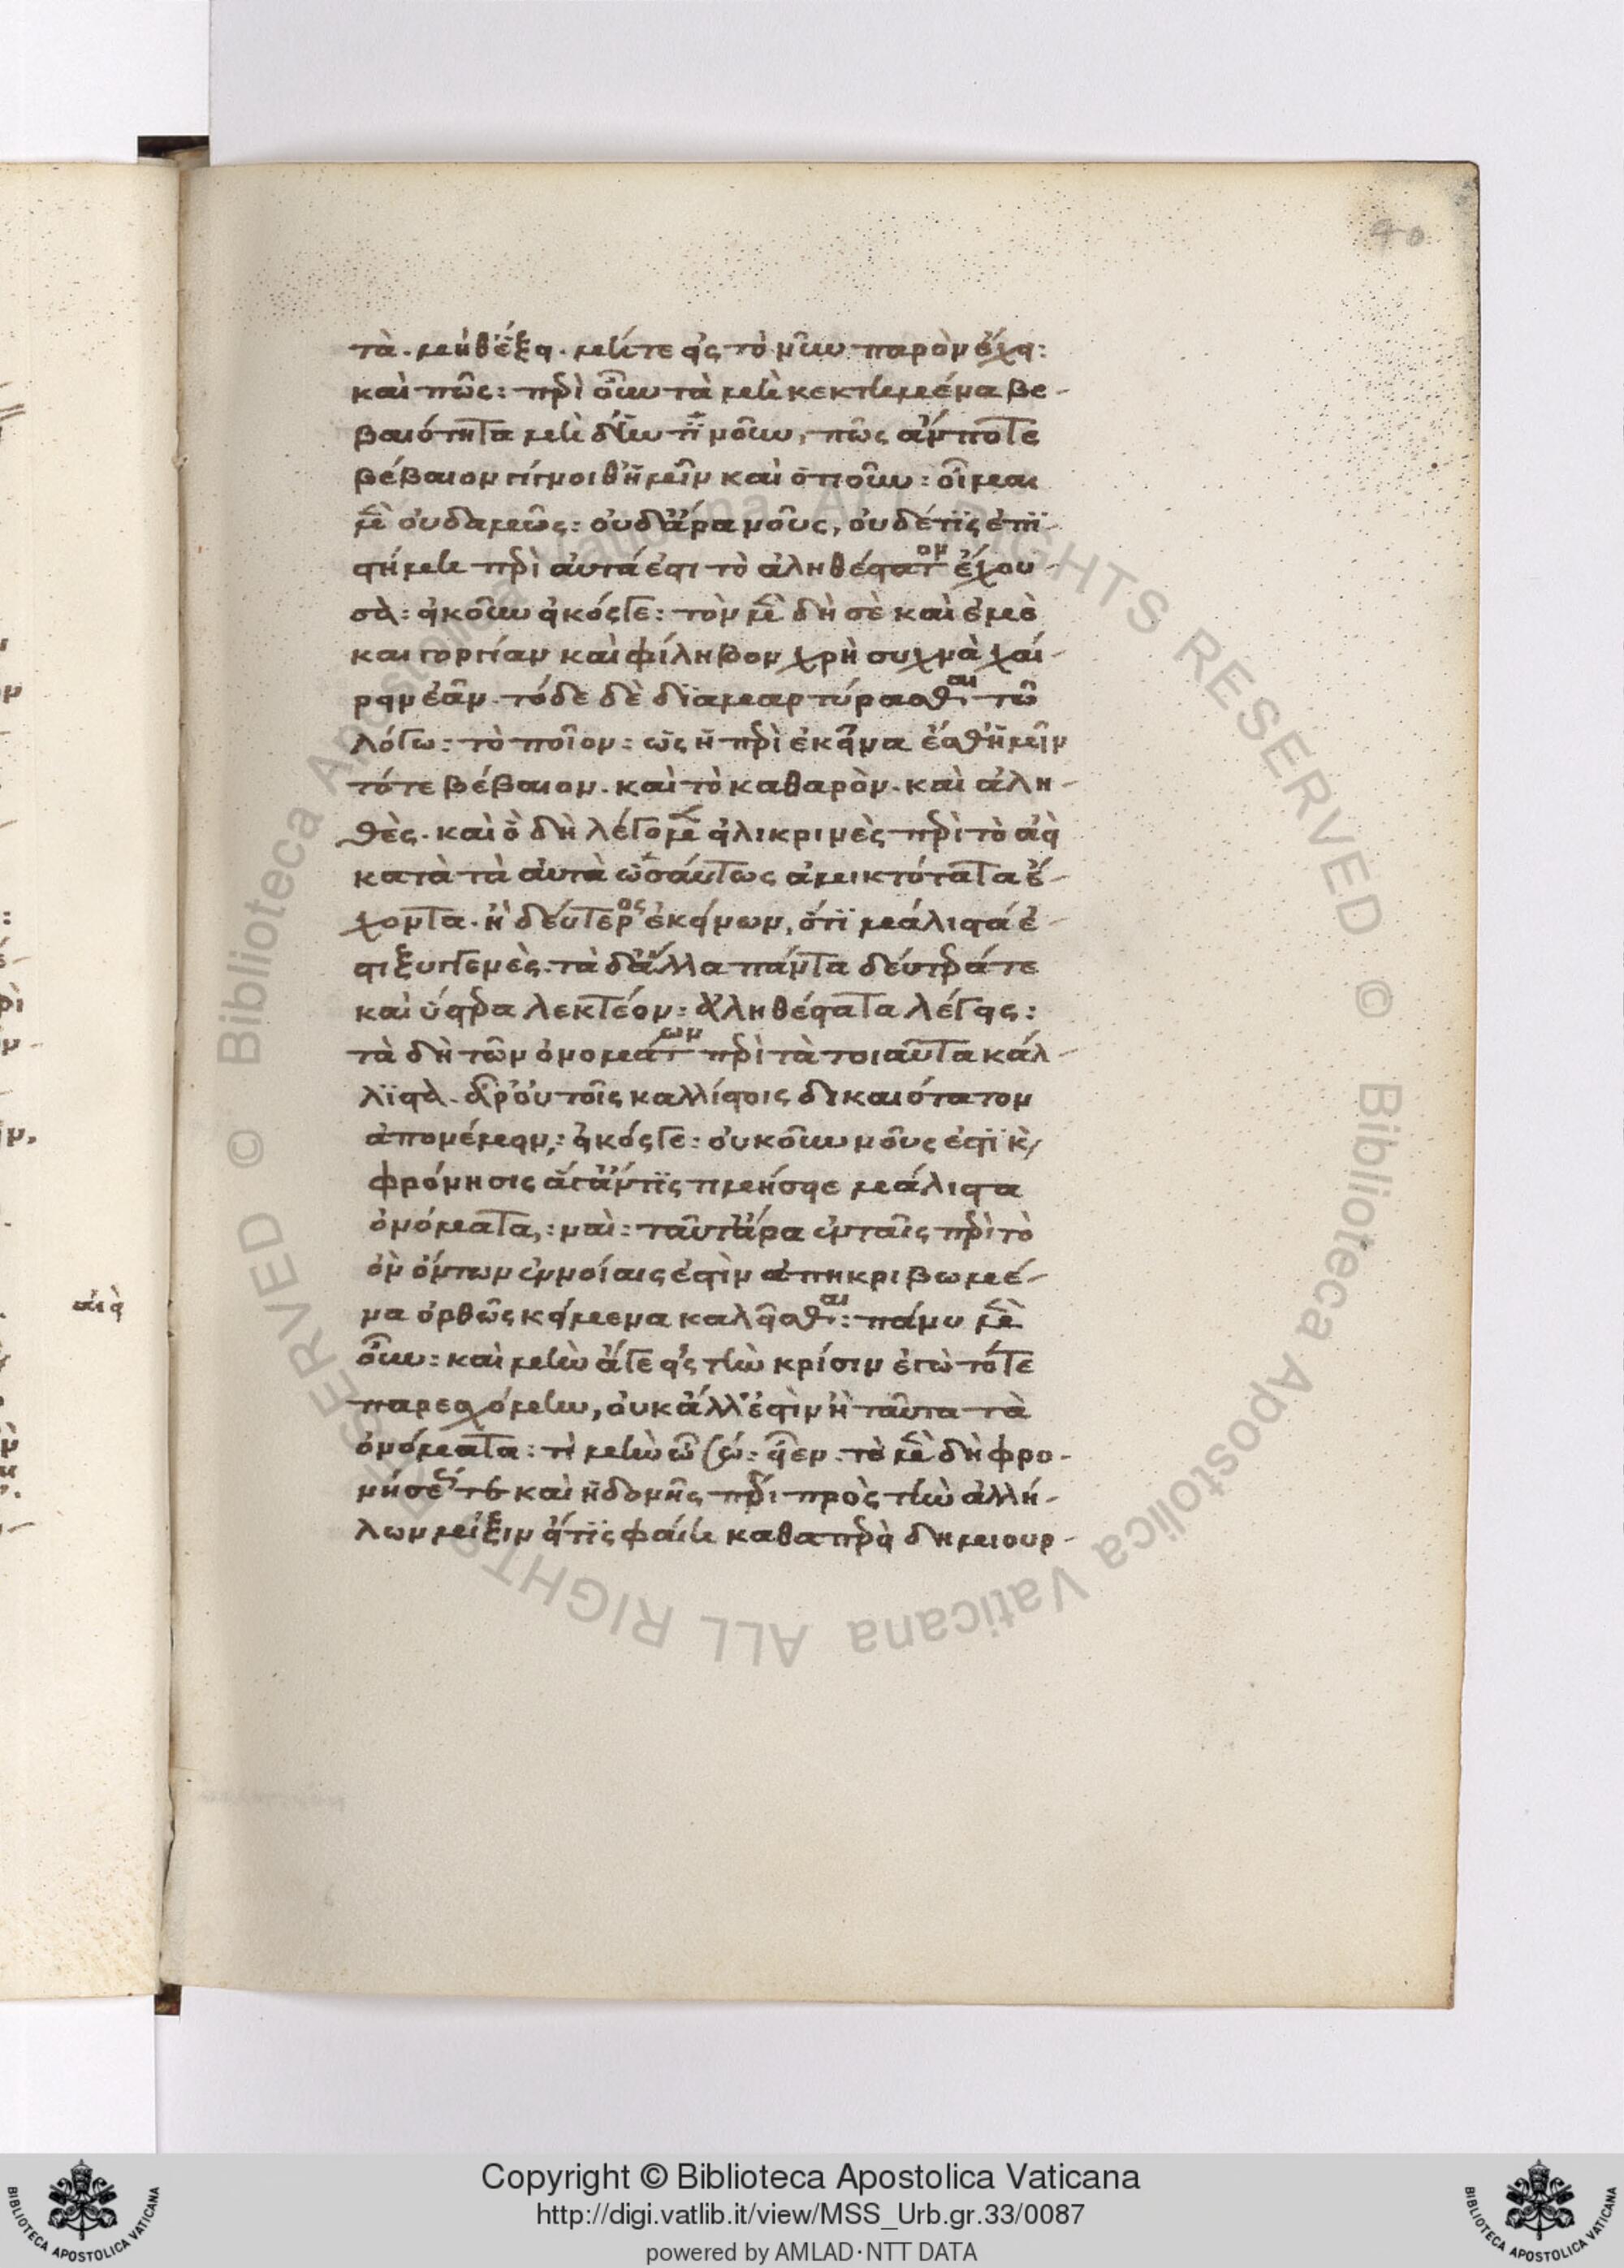 40
τὰ. μήθ' ἕξει. μήτε εἰς τὸ νῦν παρὸν ἔχει:
καὶ πῶς: περὶ οὖν τὰ μὴ κεκτημένα βε-
βαιότητα μὴ δ' ἡντινοῦν, πῶς ἄν ποτε
βέβαιον γίγνοιθ' ἡμῖν καὶ ὁτιοῦν: οἶμαι
μὲν οὐδαμῶς: οὐδ' ἄρα νοῦς, οὐδέ τις ἐπι-
στήμη περὶ αὐτά ἐστι τὸ ἀληθέστατον ἔχου-
σα: εἰκοῦν εἰκός γε: τὸν μὲν δὴ σὲ καὶ ἐμὲ
και γοργίαν καὶ φίληβον χρὴ συχνὰ χαί-
ρειν ἐᾶν. τόδε δὲ διαμαρτύρασθαι τῶ
λόγω: τὸ ποῖον: ὡς ἢ περὶ ἐκεῖνα ἔσθ' ἡμῖν
τότε βέβαιον. καὶ τὸ καθαρὸν. καὶ ἀλη-
θὲς. καὶ ὃ δὴ λέγομεν εἰλικρινὲς περὶ τὸ ἀεὶ
κατὰ τὰ αὐτὰ ὡσαύτως ἀμικτότατα ἔ-
χοντα. ἢ δεύτερος ἐκείνων, ὅτι μάλιστά ἐ-
στι ξυγγενὲς. τὰ δ' ἄλλα πάντα δεύτερά τε
καὶ ὕστερα λεκτέον: ἀληθέστατα λέγεις:
τὰ δὴ τῶν ὀνομάτων περὶ τὰ τοιαῦτα κάλ-
λιστα. ἆρ' οὐ τοῖς καλλίστοις δικαιότατον
ἀπονέμειν,: εἰκός γε: οὐκοῦν νοῦς ἐστὶ κὶ
φρόνησις ἅ γ' ἄν τις τιμήσειε μάλιστα
ὀνόματα,: ναὶ: ταῦτ' ἄρα ἐν ταῖς περὶ τὸ
ὂν ὄντων ἐννοίαις ἐστὶν ἀπηκριβωμέ-
να ὀρθῶς κείμενα καλεῖσθαι: πάνυ μὲν
οὖν: καὶ μὴν ἅ γε εἰς τὴν κρίσιν ἐγὼ τότε
παρεσχόμην, οὐκ ἄλλ' ἐστὶν ἢ ταῦτα τὰ
ὀνόματα: τὶ μὴν ὦ σώ: εἶεν. τὸ μὲν δὴ φρο-
νήσεώς τε καὶ ἡδονῆς πέρι πρὸς τὴν ἀλλή-
λων μίξιν εἴ τις φαίη καθαπερεὶ δημιουρ-
ἀεὶ
Copyright © Biblioteca Apostolica Vaticana
http://digi.vatlib.it/view/MSS_Urb.gr.33/0087
powered by AMLAD·NTT DATA
BIBLIOTECA APOSTOLICA VATICANA
BIBLIOTECA APOSTOLICA VATICANA
© Biblioteca Apostolica Vaticana ALL RIGHTS RESERVED © Biblioteca Apostolica Vaticana ALL RIGHTS RESERVED